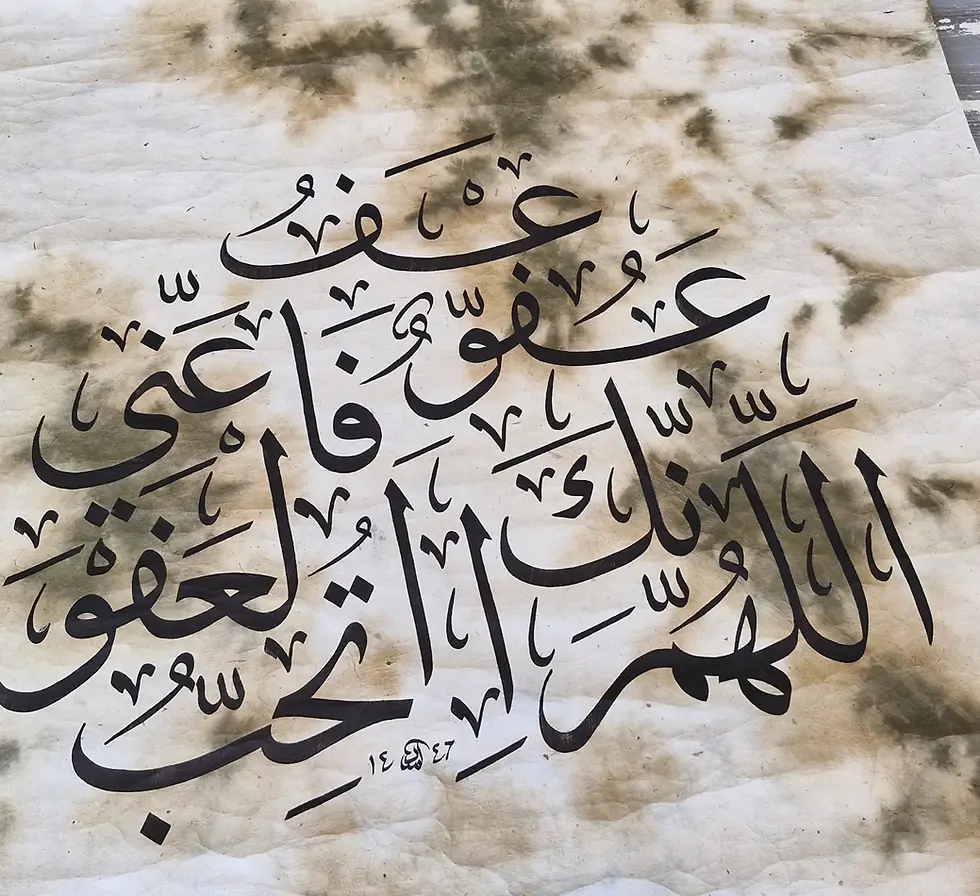 اللَّهُمَّ إِنَّكَ عَفُوٌّ
تُحِبُّ الْعَفْوَ
فَاعْفُ عَنِّي
١٤ ٤٧